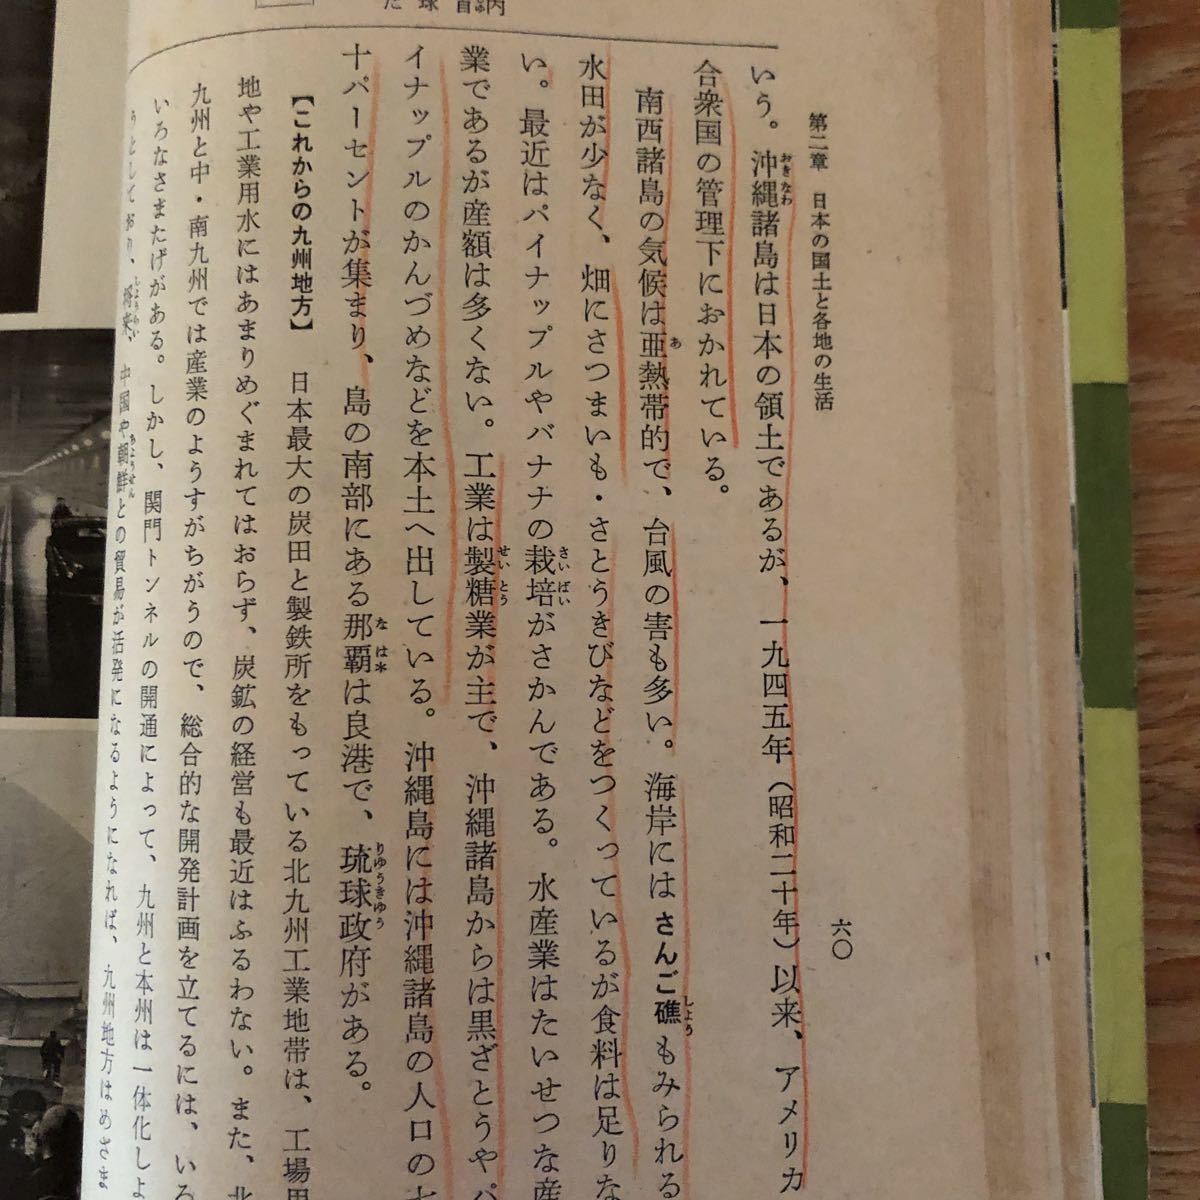 第二章 日本の国土と各地の生活
六〇
いう。沖縄諸島は日本の領土であるが、一九四五年(昭和二十年)以来、アメリカ
合衆国の管理下におかれている。
南西諸島の気候は亜熱帯的で、台風の害も多い。海岸にはさんご礁もみられる
水田が少なく、畑にさつまいも・さとうきびなどをつくっているが食料は足りな
い。最近はパイナップルやバナナの栽培がさかんである。水産業はたいせつな産
業であるが産額は多くない。工業は製糖業が主で、沖縄諸島からは黒ざとうやパ
イナップルのかんづめなどを本土へ出している。沖縄島には沖縄諸島の人口の七
十パーセントが集まり、島の南部にある那覇は良港で、琉球政府がある。
【これからの九州地方】 日本最大の炭田と製鉄所をもっている北九州工業地帯は、工場用
地や工業用水にはあまりめぐまれてはおらず、炭鉱の経営も最近はふるわない。また、北
九州と中・南九州では産業のようすがちがうので、総合的な開発計画を立てるには、いろ
いろなさまたげがある。しかし、関門トンネルの開通によって、九州と本州は一体化しよ
うとしており、将来、中国や朝鮮との貿易が活発になるようになれば、九州地方はめざま